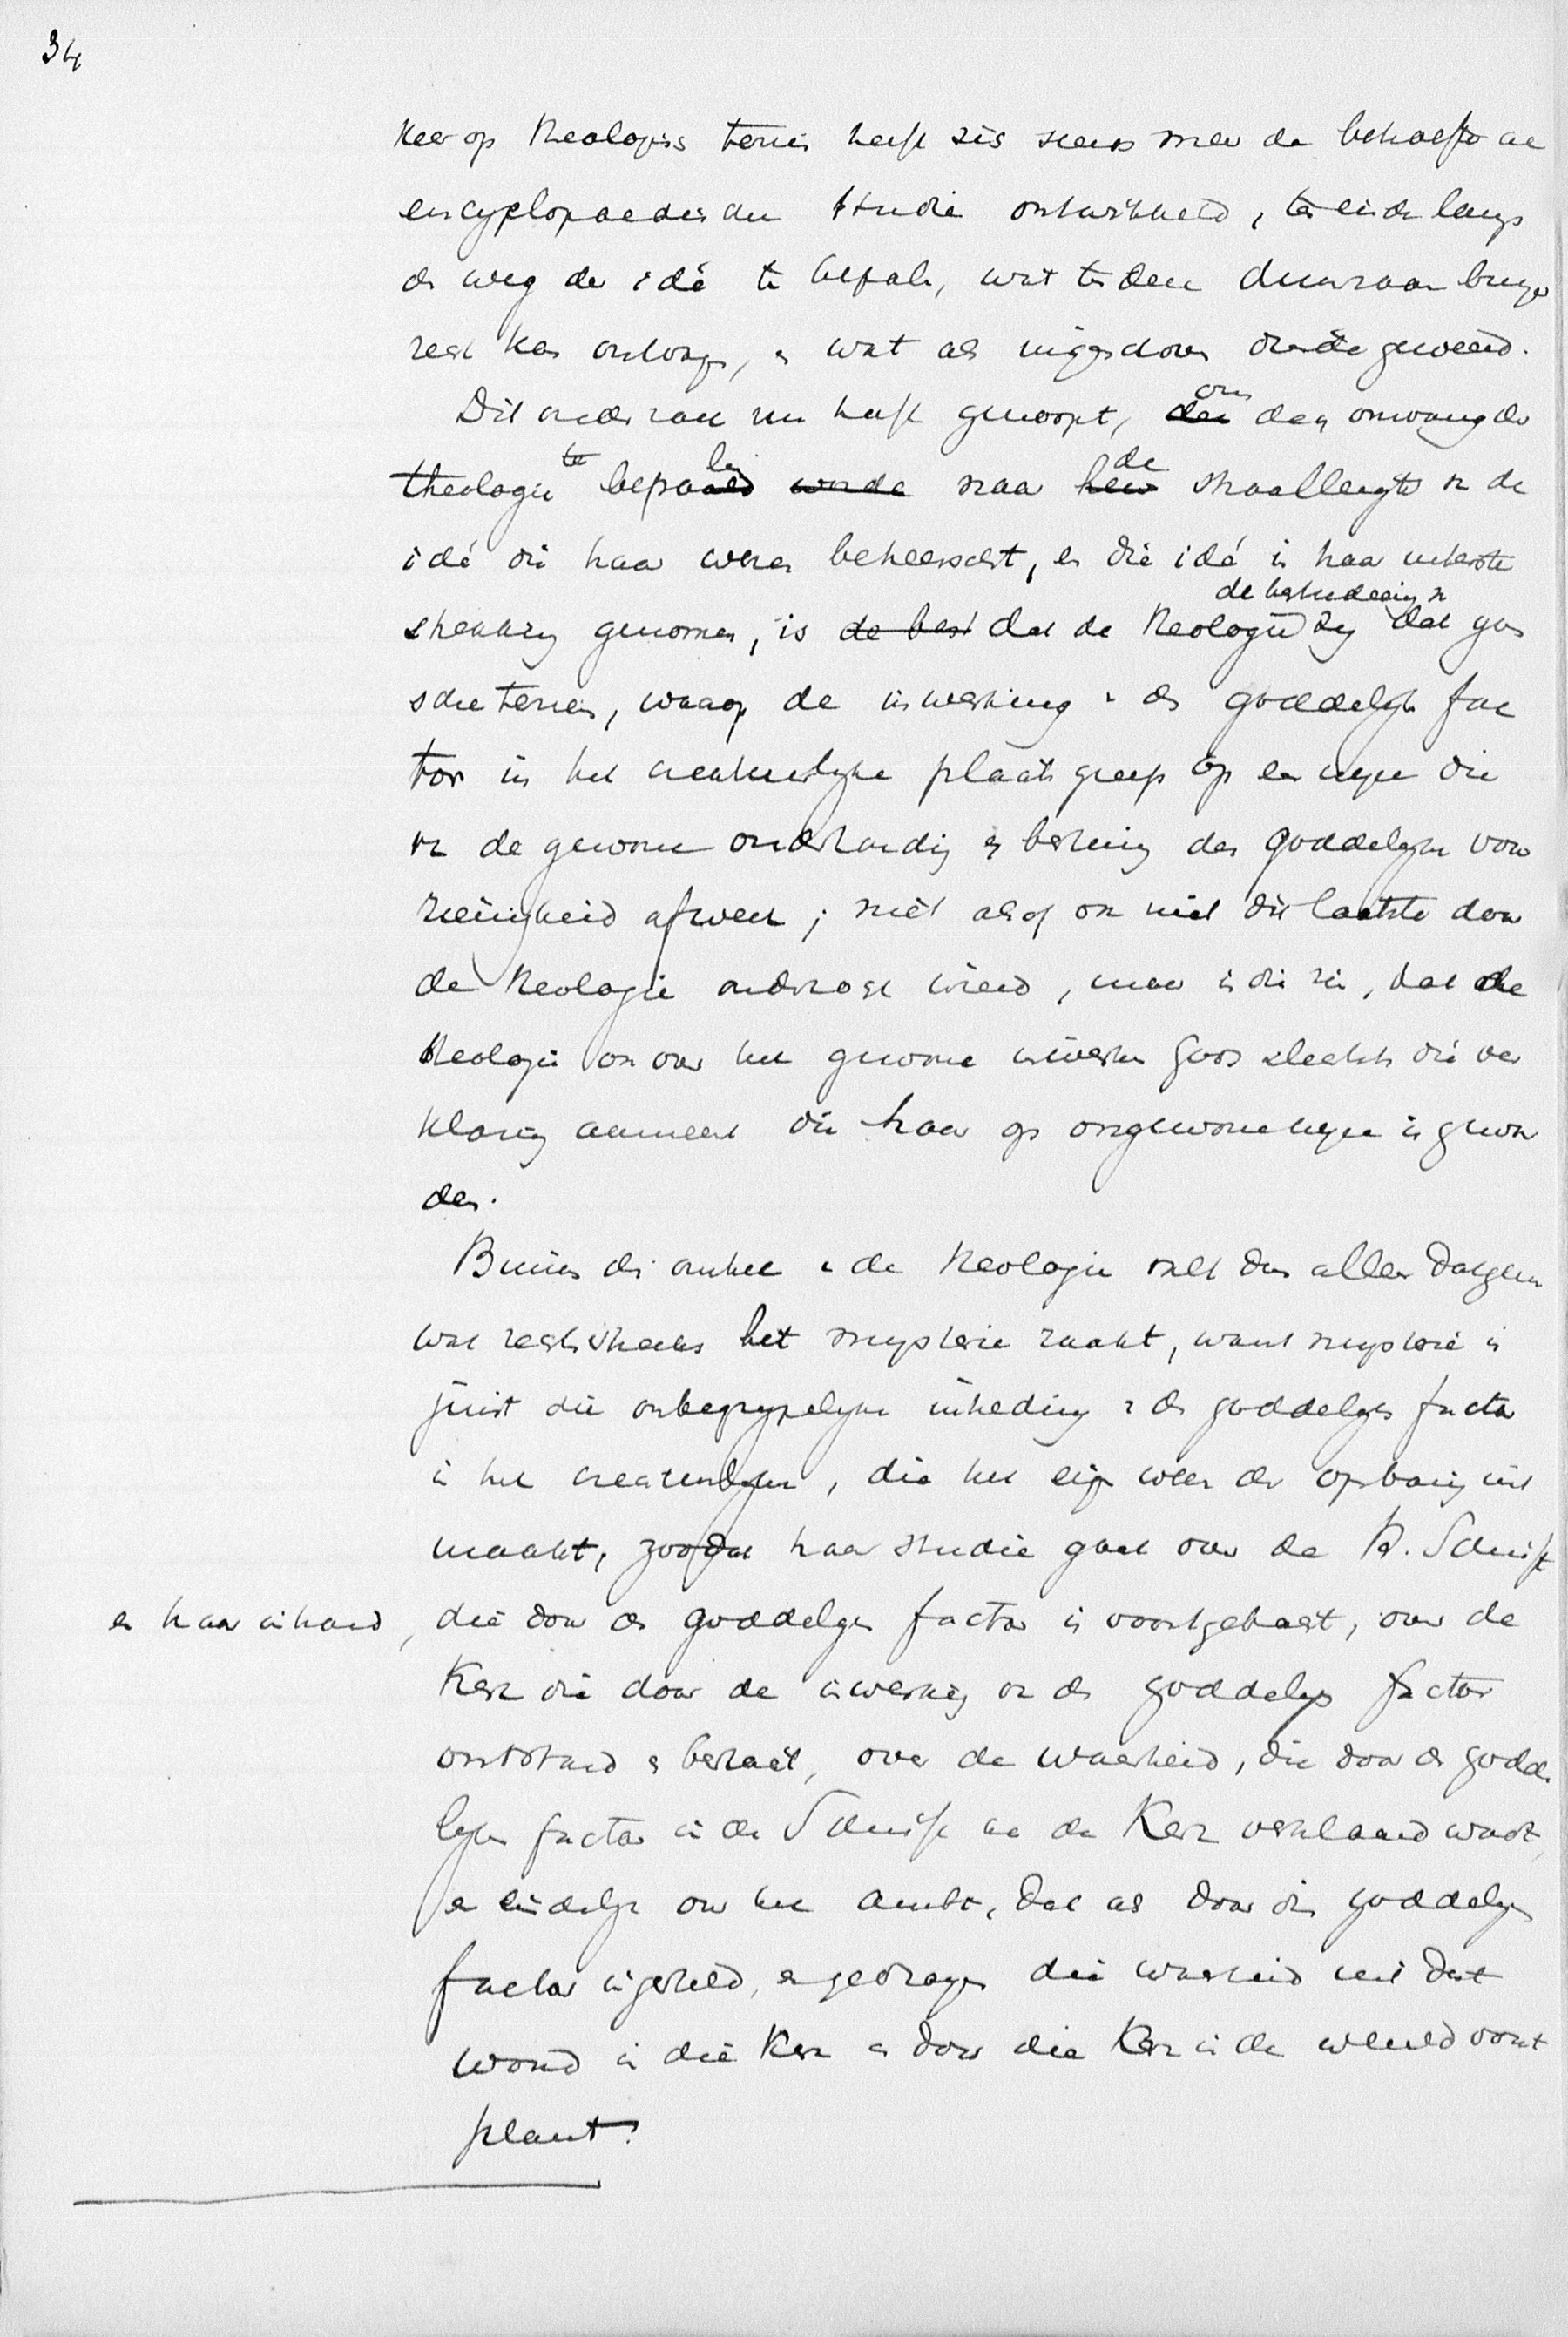 34
keer op theologis terrein heeft zis steeds meer de behoefte aa
encyclopaedis aan studie ontwikkeld, te einde langs
de weg der idé te bepale, wat te deze duurzaam burger
rest kan ontvange, en wat als worde geweerd.
Dit onderzoek nu heeft genoopt, om den omvang der
theologie te bepaalen naar de maallengte v de
idé die haar wezen beheerscht, en die idé in haar uiterste
strekking genomen, is dat de theologie de bestudering v zij dat gan
sche terrein, waarop de inwerking v de goddelijke fac
tor in het creatuurlijke plaats greep op een wyze die
v de gewone onderhouding en besturing der goddelyke voor
zienigheid afweek; niet alsof ook niet dit laatste door
de theologie onderzocht wierd, maar in die zin, dat de
theologie ook over het gewone inwerken Gods slechts die ver
klaring aanneemt die haar op ongewone wyze is gewor
den.
Binnen de omtrek v de theologie valt dus alles datgene
wat rechtstreeks het mysterie raakt, want mysterie is
juist die onbegrypelyke inleiding v de goddelyke factor
in het creatuurlyke, die het eige wezen der opbaring uit
maakt, zoodat haar studie gaat over de H. Schrift
en haar inhoud, die door de goddelyke factor is voortgebracht, over de
Kerk die door de inwerking v de goddelyke factor
ontstond en bestaat, over de waarheid, die door de godde
lyke factor in de Schrift aa de Kerk verklaard wordt,
en eindelyk over het ambt, dat als door die goddelyke
factor ingesteld, en gedragen die waarheid uit dat
woord in die Kerk en door die Kerk in de wereld voort
plant.